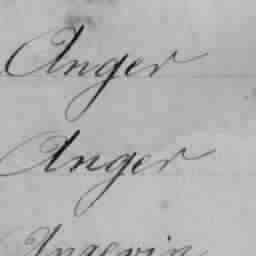 Anger
Anger
Angevin